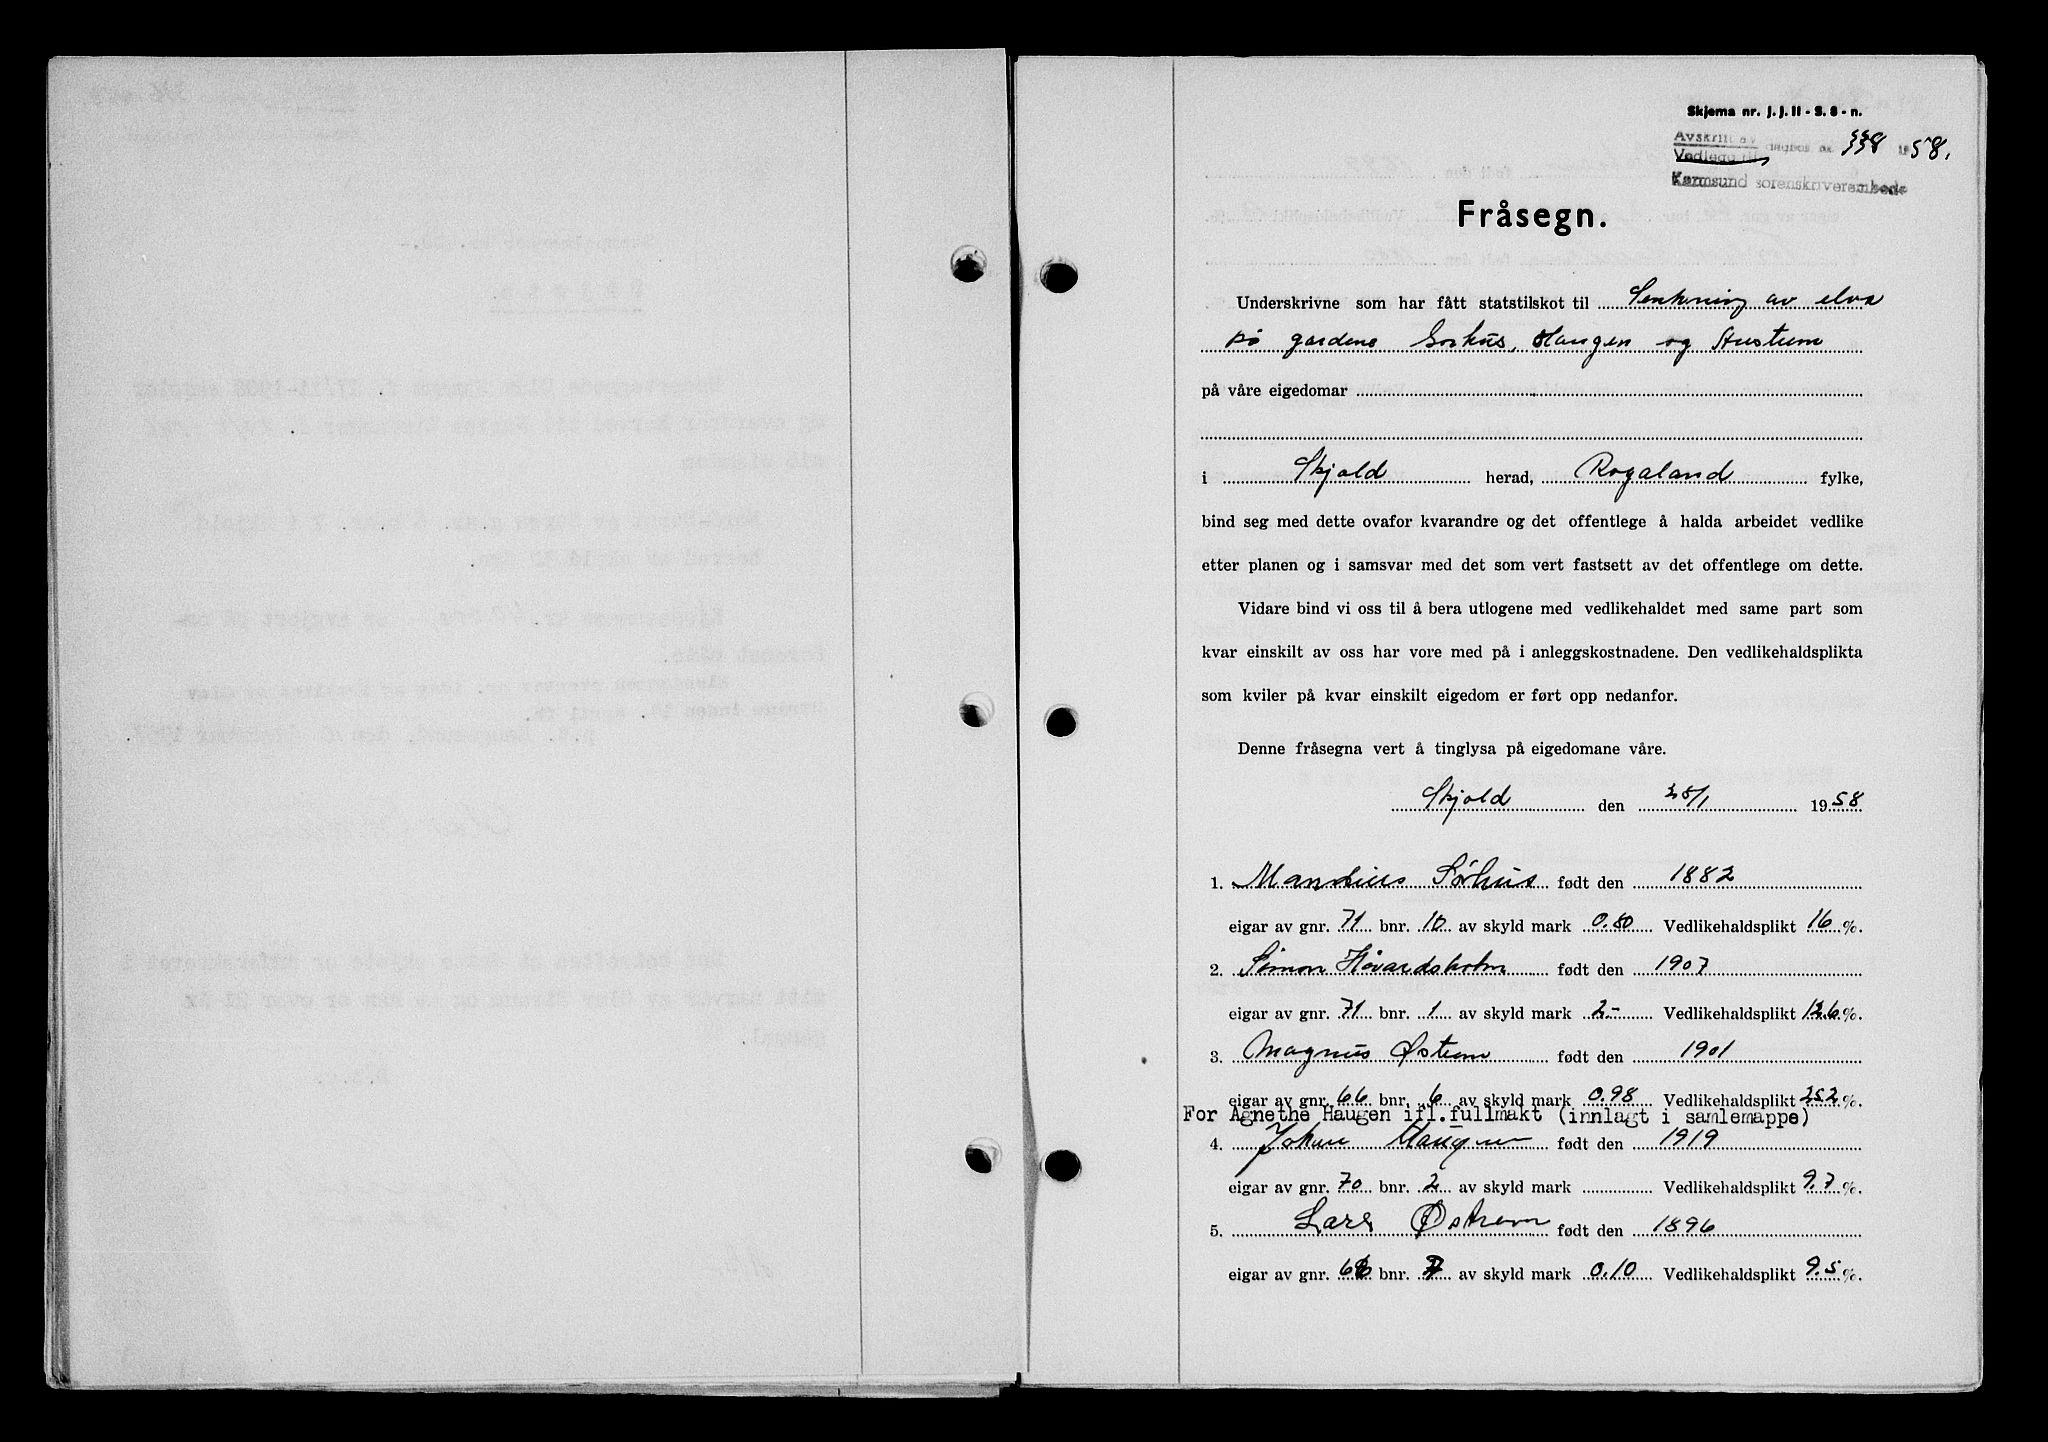 Skjema nr. J. J. II - S. 8 - n.
Avskrift av dagbok nr. 338 1958.
Vedlegg til
Karmsund sorenskriverembede
Fråsegn.
Underskrivne som har fått statstilskot til Senkning av elva
på gardene Sørhus, Haugen og Austrem
på våre eigedomar
i Skjold herad, Rogaland fylke,
bind seg med dette ovafor kvarandre og det offentlege å halda arbeidet vedlike
etter planen og i samsvar med det som vert fastsett av det offentlege om dette.
Vidare bind vi oss til å bera utlogene med vedlikehaldet med same part som
kvar einskilt av oss har vore med på i anleggskostnadene. Den vedlikehaldsplikta
som kviler på kvar einskilt eigedom er ført opp nedanfor.
Denne fråsegna vert å tinglysa på eigedomane våre.
Skjold den 28/1 1958
1. Mandius Sørhus født den 1882
eigar av gnr. 71 bnr. 10 av skyld mark 0.80 Vedlikehaldsplikt 16 %.
2. Simon Håvardsholm født den 1907
eigar av gnr. 71 bnr. 1 av skyld mark 2.- Vedlikehaldsplikt 12.6 %.
3. Magnus Østrem født den 1901
eigar av gnr. 66 bnr. 6 av skyld mark 0.98 Vedlikehaldsplikt 25.2 %.
For Agnethe Haugen ifl. fullmakt (innlagt i samlemappe)
4. Johan Haugen født den 1919
eigar av gnr. 70 bnr. 2 av skyld mark Vedlikehaldsplikt 9.7 %.
5. Lars Østrem født den 1896
eigar av gnr. 66 bnr. 7 av skyld mark 0.10 Vedlikehaldsplikt 9.5 %.